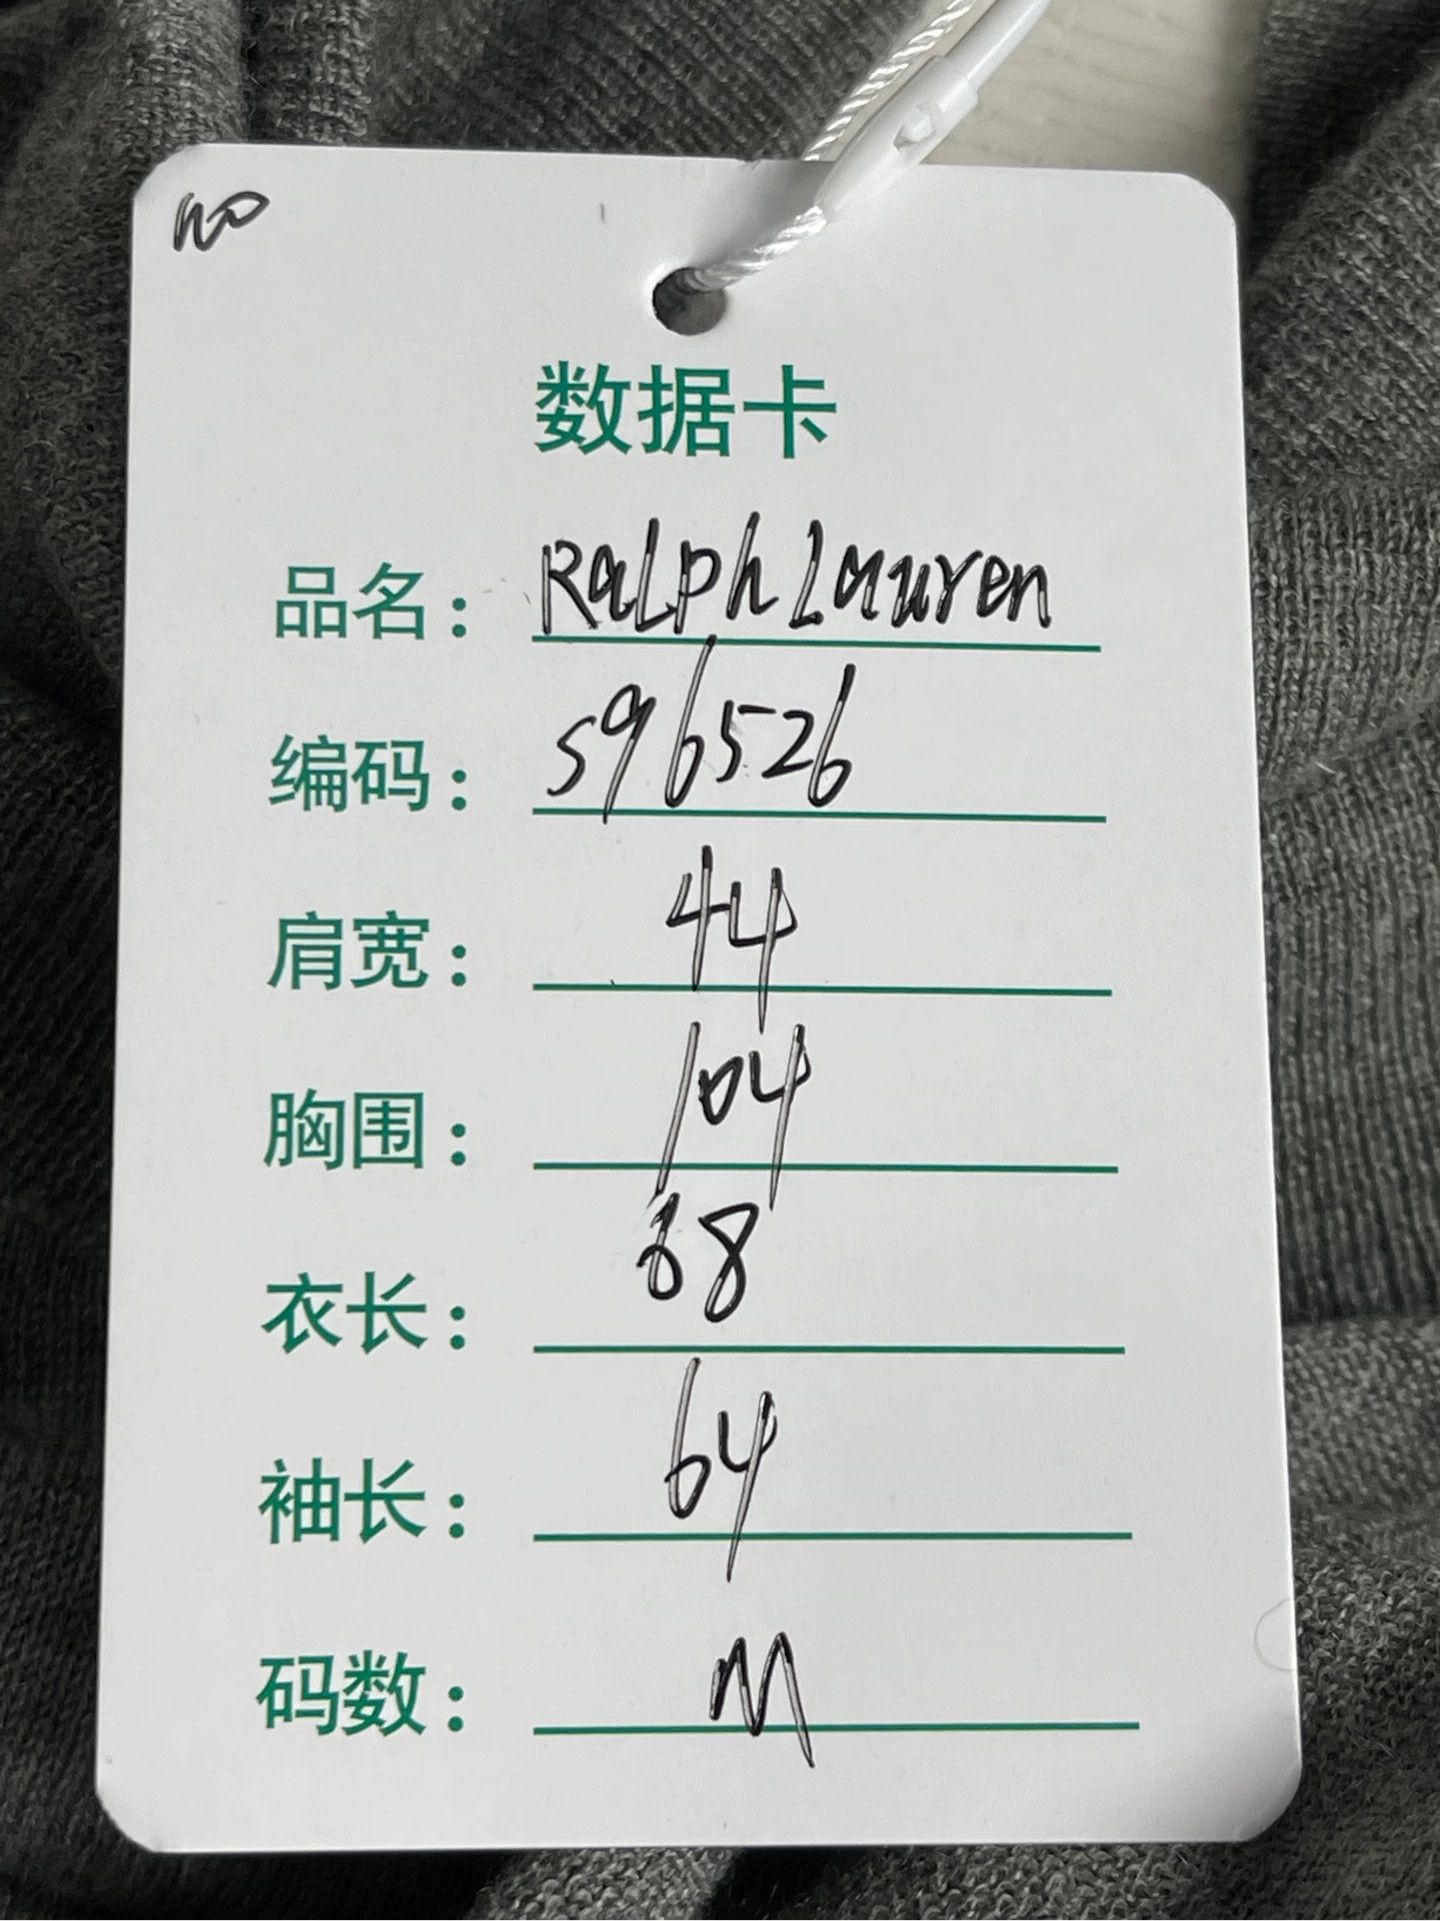 数据卡
品名: Ralph Lauren
编码: S96526
肩宽: 44
胸围: 104
衣长: 68
袖长: 64
码数: M